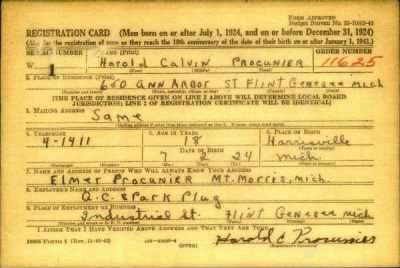 FORM APPROVED
Budget Bureau No. 33-R102-43
REGISTRATION CARD (Men born on or after July 1, 1924, and on or before December 31, 1924)
SERIAL NUMBER 1. NAME (Print) ORDER NUMBER
W 1 Harold Calvin Procunier 11625
(First) (Middle) (Last)
2. PLACE OF RESIDENCE (Print)
660 Ann Arbor St Flint Genesee Mich
[THE PLACE OF RESIDENCE GIVEN ON LINE 2 ABOVE WILL DETERMINE LOCAL BOARD
JURISDICTION; LINE 2 OF REGISTRATION CERTIFICATE WILL BE IDENTICAL]
3. MAILING ADDRESS
Same
4. TELEPHONE 5. AGE IN YEARS 6. PLACE OF BIRTH
4-1411 18 Harrisville
DATE OF BIRTH
7 2 24 Mich
7. NAME AND ADDRESS OF PERSON WHO WILL ALWAYS KNOW YOUR ADDRESS
Elmer Procunier Mt. Morris, Mich.
8. EMPLOYER'S NAME AND ADDRESS
A.C. Spark Plug
9. PLACE OF EMPLOYMENT OR BUSINESS
Industrial St. Flint Genesee Mich
I AFFIRM THAT I HAVE VERIFIED ABOVE ANSWERS AND THAT THEY ARE TRUE.
DSS FORM 1 Harold C Procunier